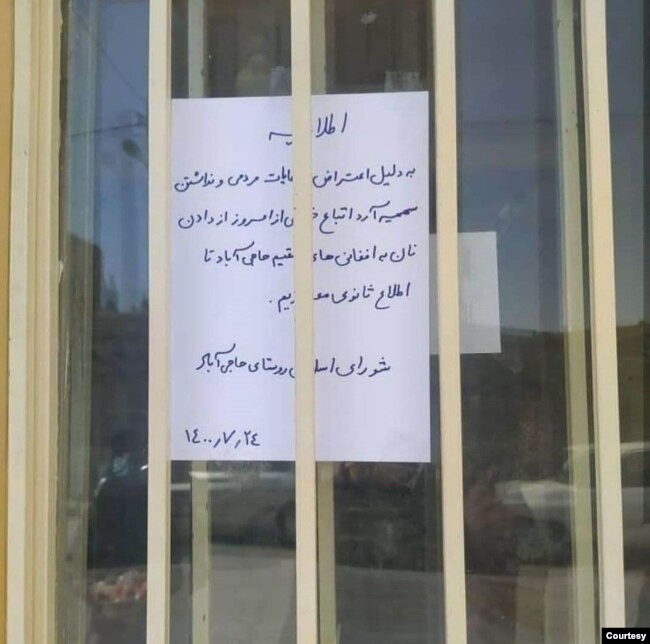 اطلاعیه
به دلیل اعتراض شکایات مردمی و نداشتن
سهمیه آرد اتباع خارجی از امروز از دادن
نان به افغانی های مقیم حاجی آباد تا
اطلاع ثانوی معذوریم .
شورای اسلامی روستای حاجی آباد
۱۴۰۰٫۷٫۲۴
Courtesy